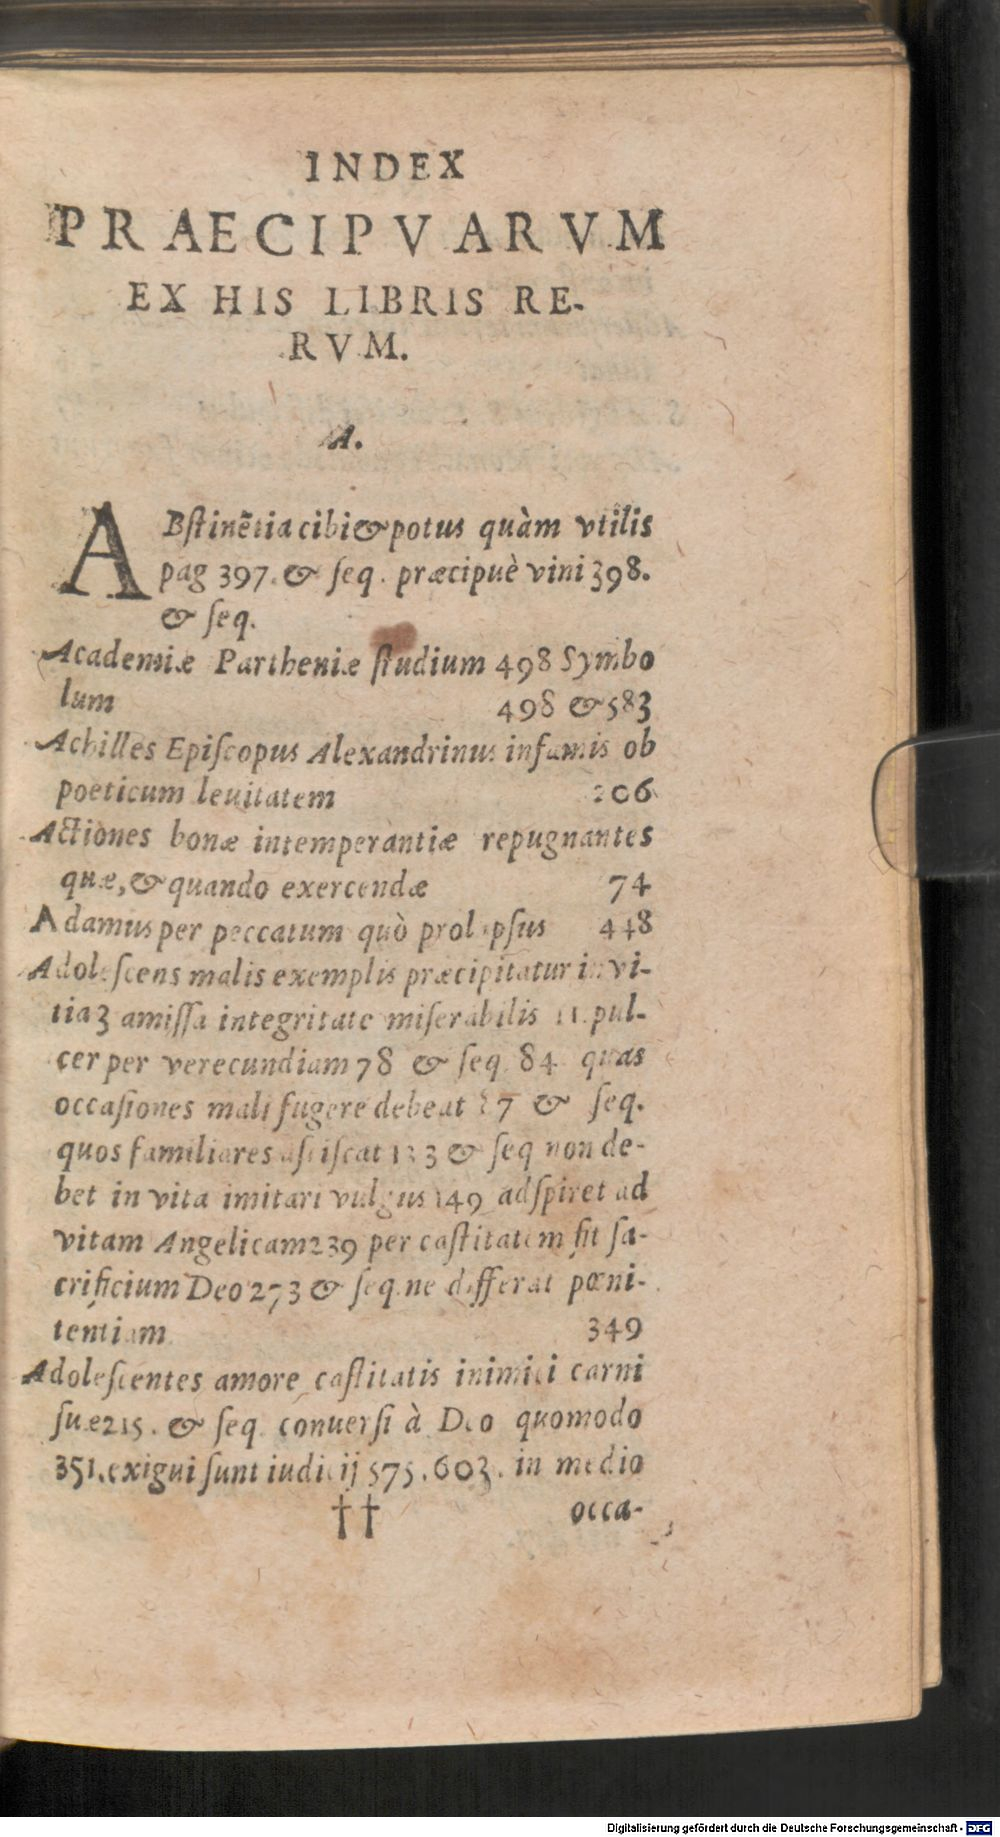 INDEX
PRAECIPVARVM
EX HIS LIBRIS RE-
RVM.
A.
ABſtinẽtia cibi & potus quàm vtilis
pag 397. & ſeq. præcipuè vini 398.
& ſeq.
Academiæ Partheniæ ſtudium 498 Symbo
lum 498 & 583
Achilles Epiſcopus Alexandrinus infamis ob
poeticum leuitatem 206
Actiones bonæ intemperantiæ repugnantes
quæ, & quando exercendæ 74
Adamus per peccatum quò prolapſus 448
Adoleſcens malis exemplis præcipitatur in vi-
tia 3 amiſſa integritate miſerabilis 11. pul-
cer per verecundiam 78 & ſeq. 84 quas
occaſiones mali fugere debeat 7 & ſeq.
quos familiares aſciſcat & ſeq non de-
bet in vita imitari vulgus 149 adſpiret ad
vitam Angelicam 239 per caſtitatem fit ſa-
crificium Deo 273 & ſeq. ne differat pœni-
tentiam 349
Adoleſcentes amore caſtitatis inimici carni
ſuæ 215. & ſeq. conuerſi à Deo quomodo
351. exigui ſunt iudicij 575. 603. in medio
†† occa-
Digitalisierung gefördert durch die Deutsche Forschungsgemeinschaft - DFG